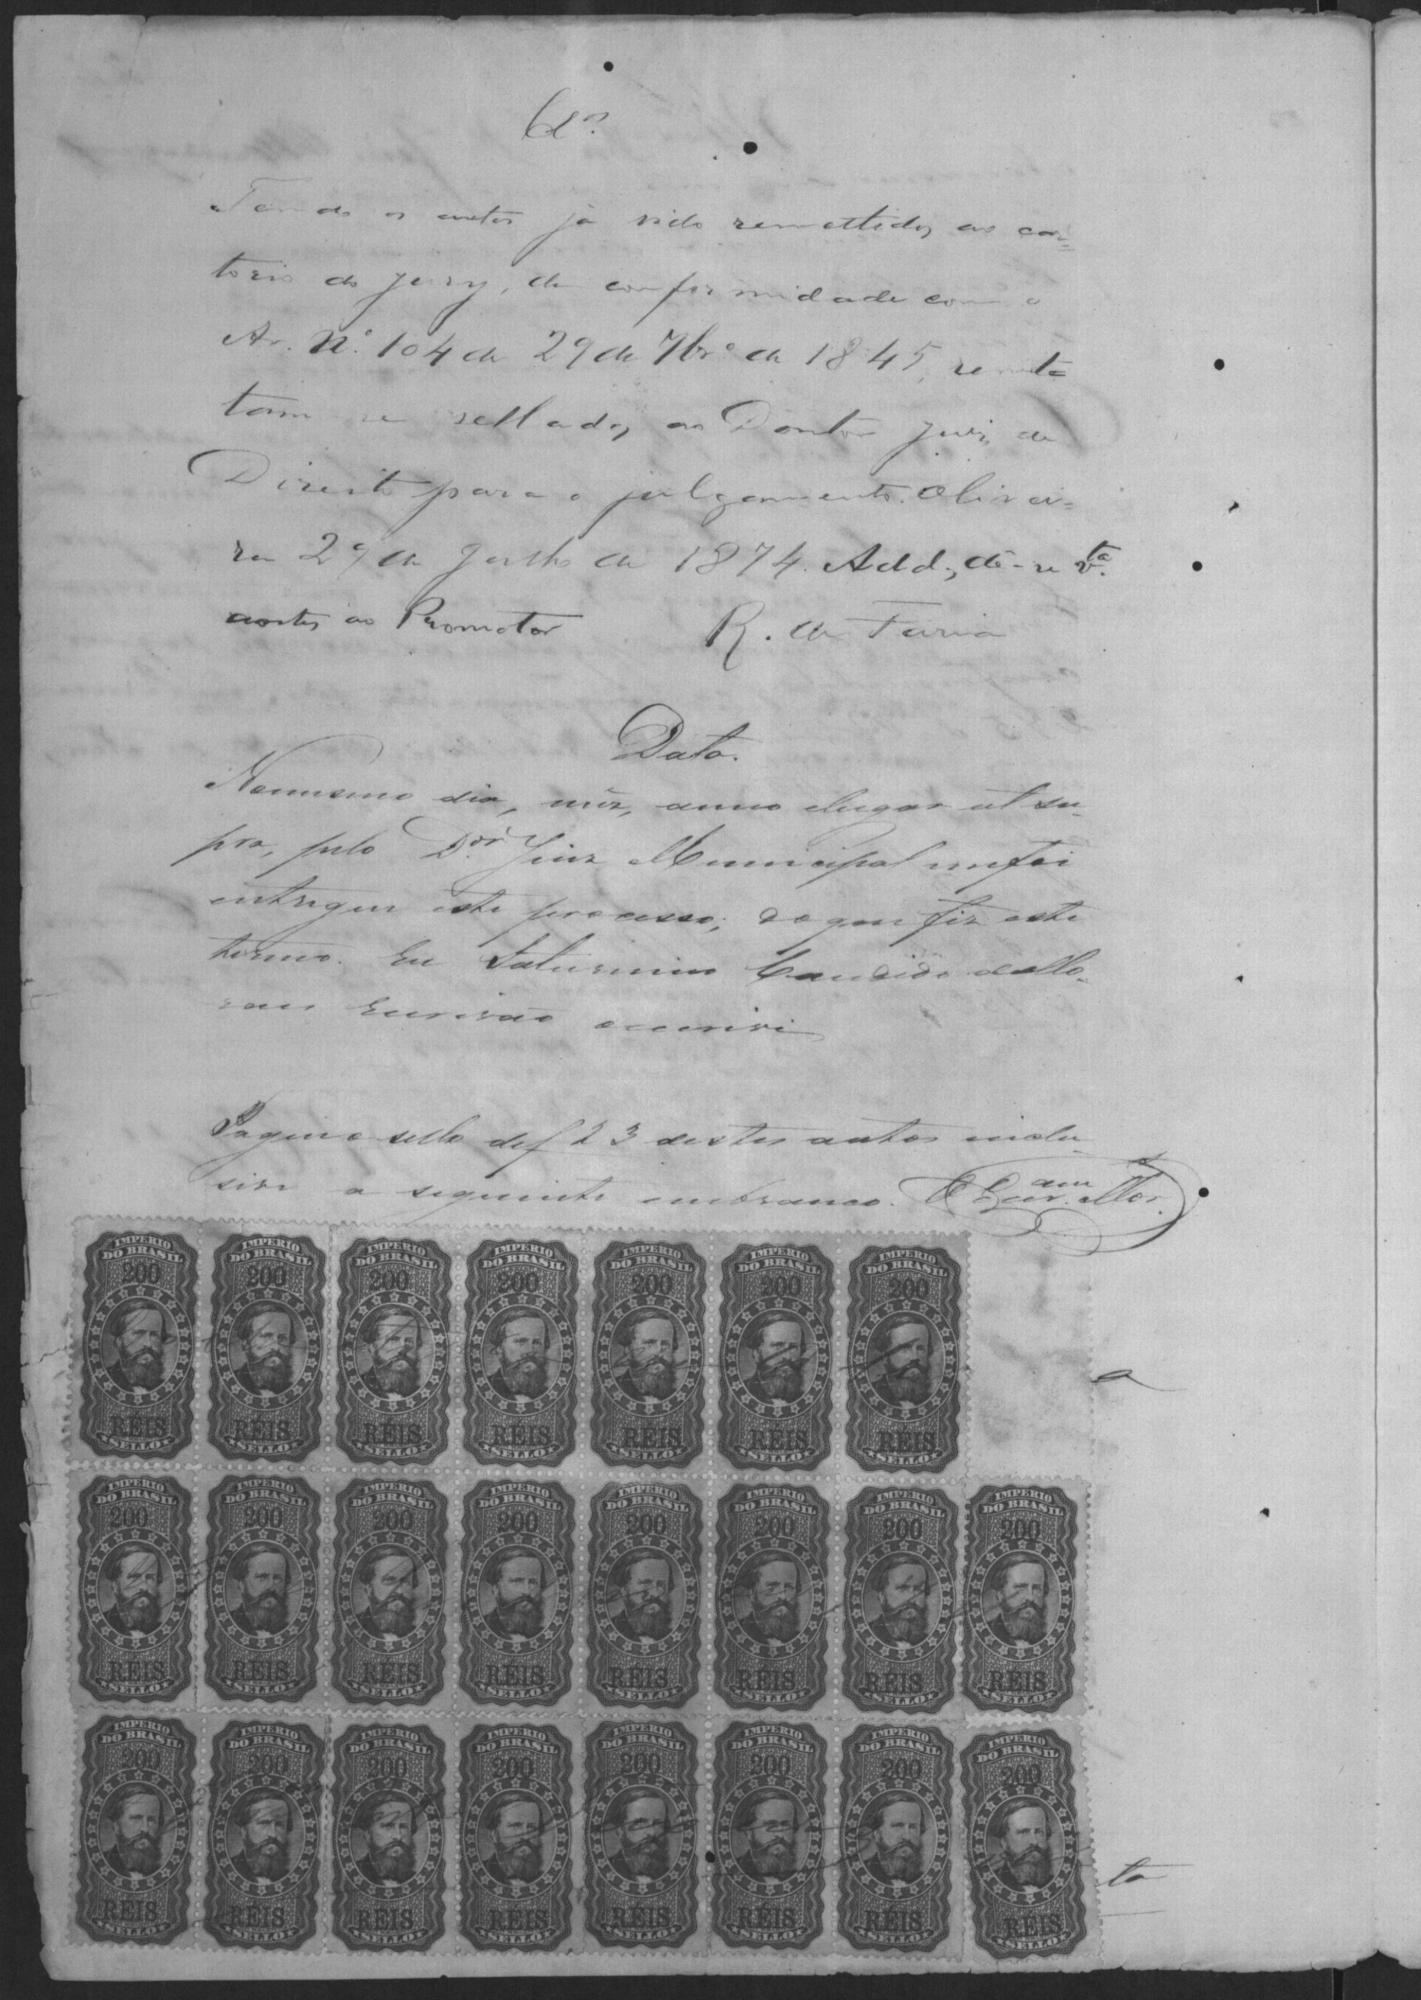 Cl.os
Tendo os autos já sido remettidos ao car=
torio do jury, de conformidade com o
Av. N.º 104 de 29 de 7br.º de 1845, remet=
tam se sellados ao Doutor Juiz de
Direito para o julgamento. Olivei=
ra 29 de Julho de 1874. Add, dê-se v.ta
antes ao Promotor R. de Faria
Data.
No mesmo dia, mêz, anno e lugar ut su-
pra, pelo D.or Juiz Municipal me foi
entregue este processo; do que fiz este
termo. Eu Saturnino Candido de Mo-
raes Escrivão o escrivi
Pagou o sello de f 23 destes autos inclu
sive a seguinte em branco. O Escr.am Mor.
IMPERIO DO BRASIL 200 RÉIS SELLO IMPERIO DO BRASIL 200 RÉIS SELLO IMPERIO DO BRASIL 200 RÉIS SELLO IMPERIO DO BRASIL 200 RÉIS SELLO IMPERIO DO BRASIL 200 RÉIS SELLO IMPERIO DO BRASIL 200 RÉIS SELLO IMPERIO DO BRASIL 200 RÉIS SELLO
a
IMPERIO DO BRASIL 200 RÉIS SELLO IMPERIO DO BRASIL 200 RÉIS SELLO IMPERIO DO BRASIL 200 RÉIS SELLO IMPERIO DO BRASIL 200 RÉIS SELLO IMPERIO DO BRASIL 200 RÉIS SELLO IMPERIO DO BRASIL 200 RÉIS SELLO IMPERIO DO BRASIL 200 RÉIS SELLO IMPERIO DO BRASIL 200 RÉIS SELLO
IMPERIO DO BRASIL 200 RÉIS SELLO IMPERIO DO BRASIL 200 RÉIS SELLO IMPERIO DO BRASIL 200 RÉIS SELLO IMPERIO DO BRASIL 200 RÉIS SELLO IMPERIO DO BRASIL 200 RÉIS SELLO IMPERIO DO BRASIL 200 RÉIS SELLO IMPERIO DO BRASIL 200 RÉIS SELLO IMPERIO DO BRASIL 200 RÉIS SELLO
to